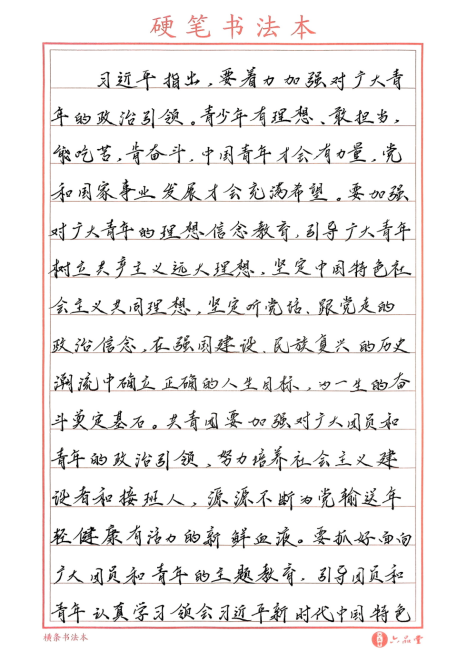 硬笔书法本
习近平指出，要着力加强对广大青
年的政治引领。青少年有理想、敢担当，
能吃苦，肯奋斗，中国青年才会有力量，党
和国家事业发展才会充满希望。要加强
对广大青年的理想信念教育，引导广大青年
树立共产主义远大理想，坚定中国特色社
会主义共同理想，坚定听党话、跟党走的
政治信念，在强国建设、民族复兴的历史
潮流中确立正确的人生目标，为一生的奋
斗奠定基石。共青团要加强对广大团员和
青年的政治引领，努力培养社会主义建
设者和接班人，源源不断为党输送年
轻健康有活力的新鲜血液。要抓好面向
广大团员和青年的主题教育，引导团员和
青年认真学习领会习近平新时代中国特色
横条书法本
六品堂